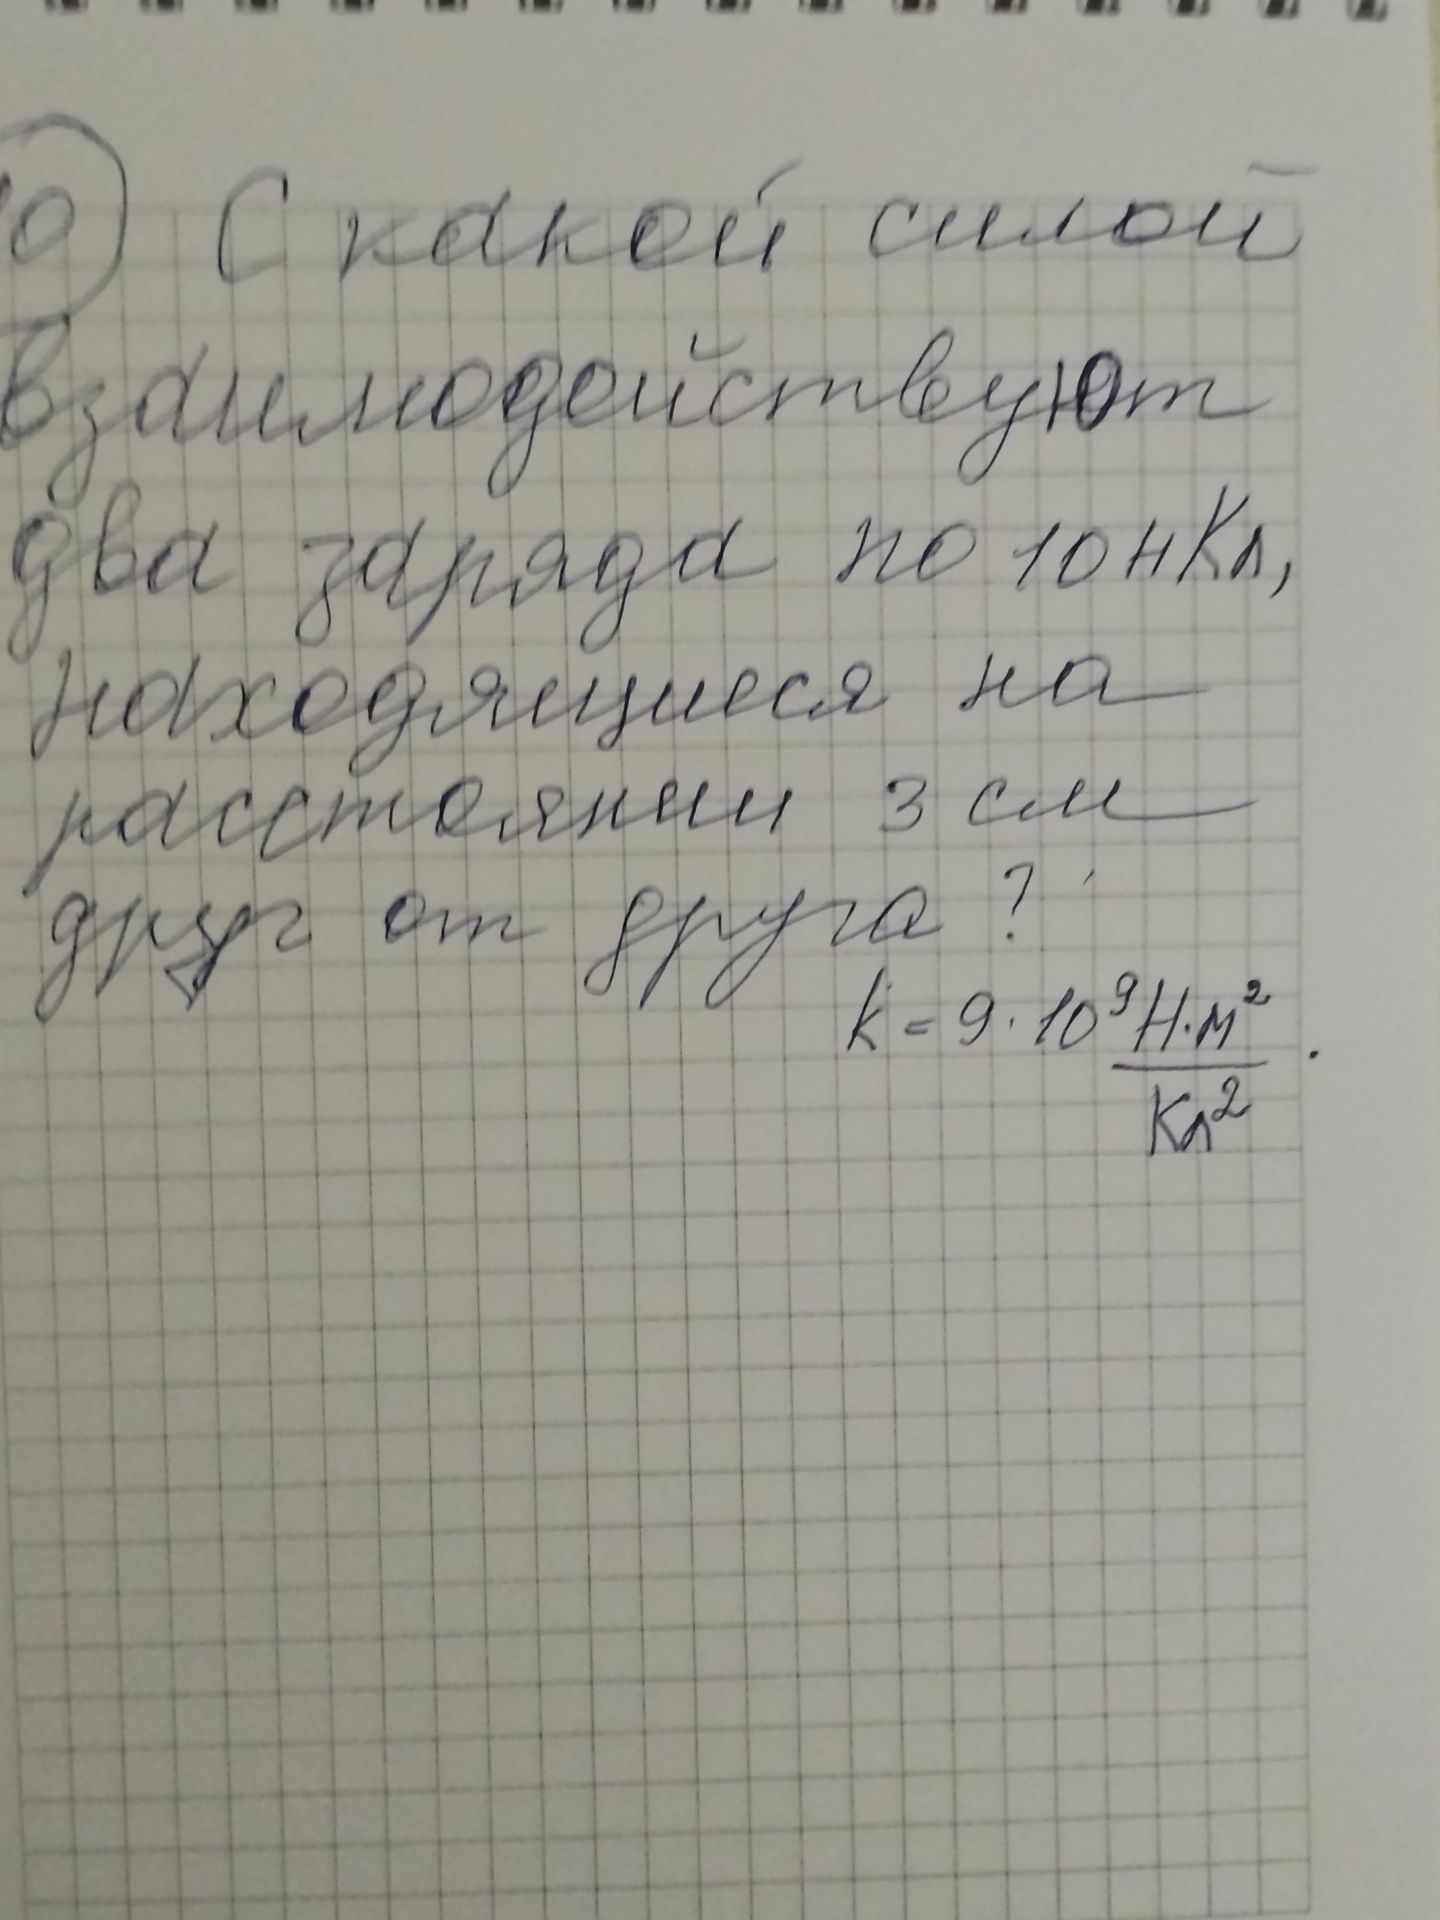 10) С какой силой
взаимодействуют
два заряда по 10 нКл,
находящиеся на
расстоянии 3 см
друг от друга?
k = 9·10⁹ Н·м²
Кл²